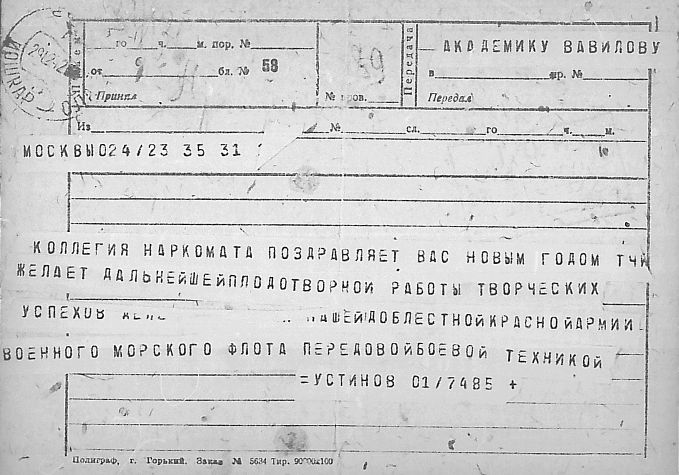 го ч. м. пор. №
АКАДЕМИКУ ВАВИЛОВУ
от бл. № 58
59
Передача
в пр. №
Принял
№ пров.
Передал
Из № сл. го ч. м.
МОСКВЫ024/23 35 31
КОЛЛЕГИЯ НАРКОМАТА ПОЗДРАВЛЯЕТ ВАС НОВЫМ ГОДОМ ТЧК
ЖЕЛАЕТ ДАЛЬНЕЙШЕЙПЛОДОТВОРНОЙ РАБОТЫ ТВОРЧЕСКИХ
УСПЕХОВ НАШЕЙДОБЛЕСТНОЙКРАСНОЙАРМИИ
ВОЕННОГО МОРСКОГО ФЛОТА ПЕРЕДОВОЙБОЕВОЙ ТЕХНИКОЙ
=УСТИНОВ 01/7485 +
Полиграф, г. Горький. Заказ № 5634 Тир. 90000х100